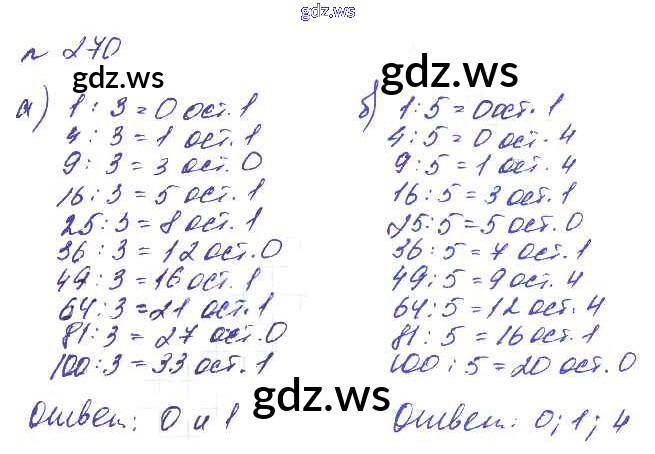 gdz.ws
№ 270
gdz.ws
gdz.ws
а) 1 : 3 = 0 ост. 1
4 : 3 = 1 ост. 1
9 : 3 = 3 ост. 0
16 : 3 = 5 ост. 1
25 : 3 = 8 ост. 1
36 : 3 = 12 ост. 0
49 : 3 = 16 ост. 1
64 : 3 = 21 ост. 1
81 : 3 = 27 ост. 0
100 : 3 = 33 ост. 1
Ответ: 0 и 1
б) 1 : 5 = 0 ост. 1
4 : 5 = 0 ост. 4
9 : 5 = 1 ост. 4
16 : 5 = 3 ост. 1
25 : 5 = 5 ост. 0
36 : 5 = 7 ост. 1
49 : 5 = 9 ост. 4
64 : 5 = 12 ост. 4
81 : 5 = 16 ост. 1
100 : 5 = 20 ост. 0
Ответ: 0; 1; 4
gdz.ws